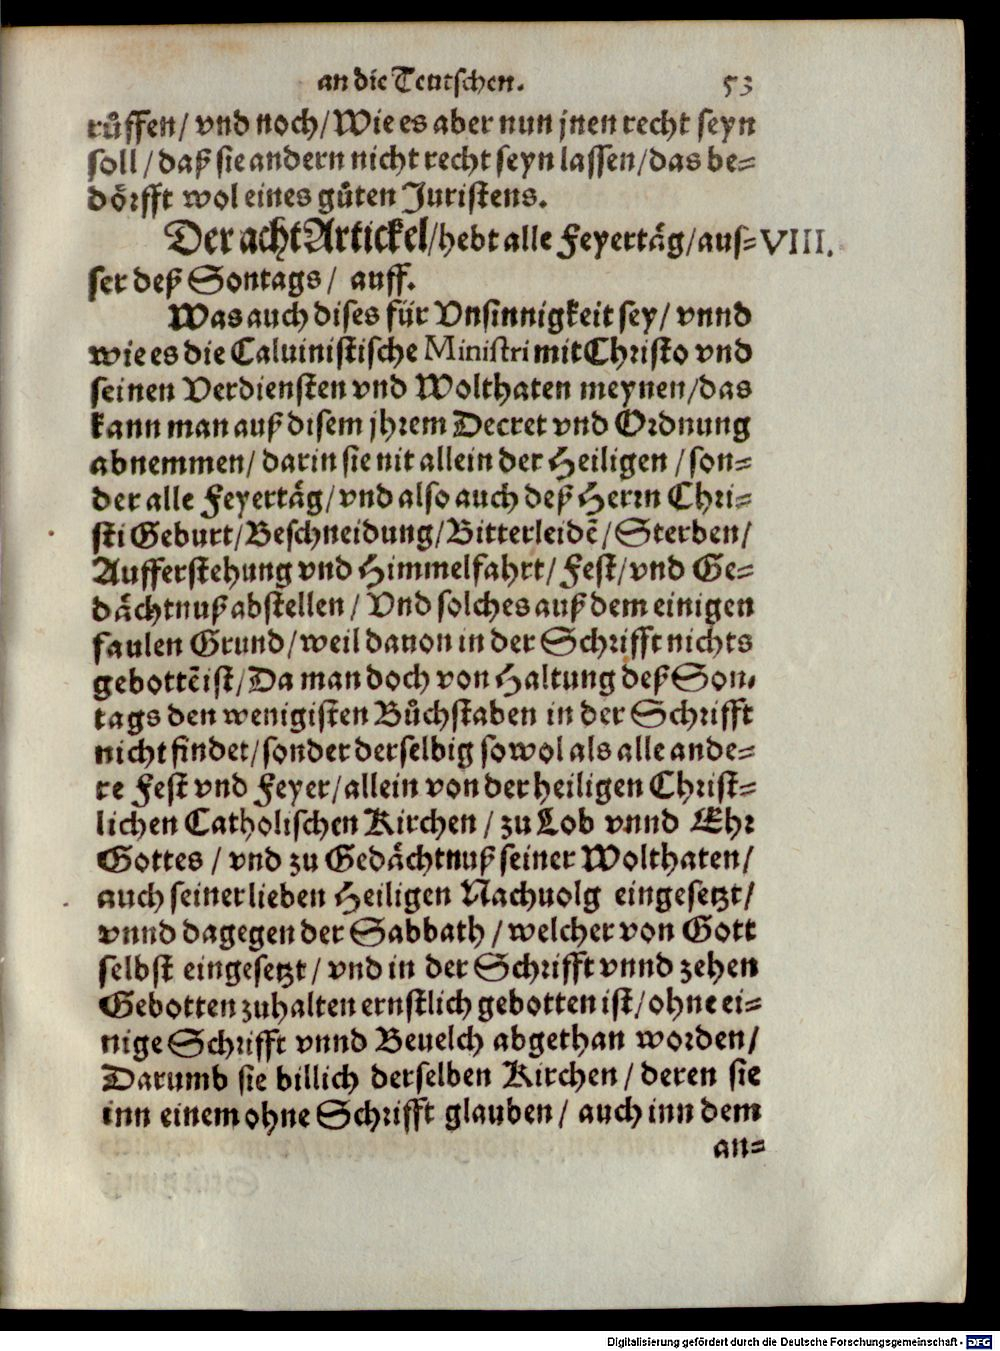 an die Teutschen. 53
růffen/ vnd noch/ Wie es aber nun jnen recht seyn
soll / daß sie andern nicht recht seyn lassen/das be-
doͤrfft wol eines gůten Juristens.
Der acht Artickel/hebt alle Feyertaͤg/aus- VIII.
ser deß Sontags / auff.
Was auch dises für Vnsinnigkeit sey/ vnnd
wie es die Caluinistische Ministri mit Christo vnd
seinen Verdiensten vnd Wolthaten meynen/das
kann man auß disem jhrem Decret vnd Ordnung
abnemmen/ darin sie nit allein der Heiligen /son-
der alle Feyertaͤg/vnd also auch deß Herrn Chri-
sti Geburt/Beschneidung/Bitterleidẽ/Sterben/
Aufferstehung vnd Himmelfahrt/ Fest/vnd Ge-
daͤchtnuß abstellen / Vnd solches auß dem einigen
faulen Grund/weil dauon in der Schrifft nichts
gebottẽ ist/Da man doch von Haltung deß Son-
tags den wenigisten Bůchstaben in der Schrifft
nicht findet/sonder derselbig so wol als alle ande-
re Fest vnd Feyer/allein von der heiligen Christ-
lichen Catholischen Kirchen / zu Lob vnnd Ehr
Gottes / vnd zu Gedaͤchtnuß seiner Wolthaten/
auch seiner lieben Heiligen Nachuolg eingesetzt/
vnnd dagegen der Sabbath / welcher von Gott
selbst eingesetzt / vnd in der Schrifft vnnd zehen
Gebotten zuhalten ernstlich gebotten ist/ohne ei-
nige Schrifft vnnd Beuelch abgethan worden/
Darumb sie billich derselben Kirchen / deren sie
inn einem ohne Schrifft glauben / auch inn dem
an-
Digitalisierung gefördert durch die Deutsche Forschungsgemeinschaft - DFG